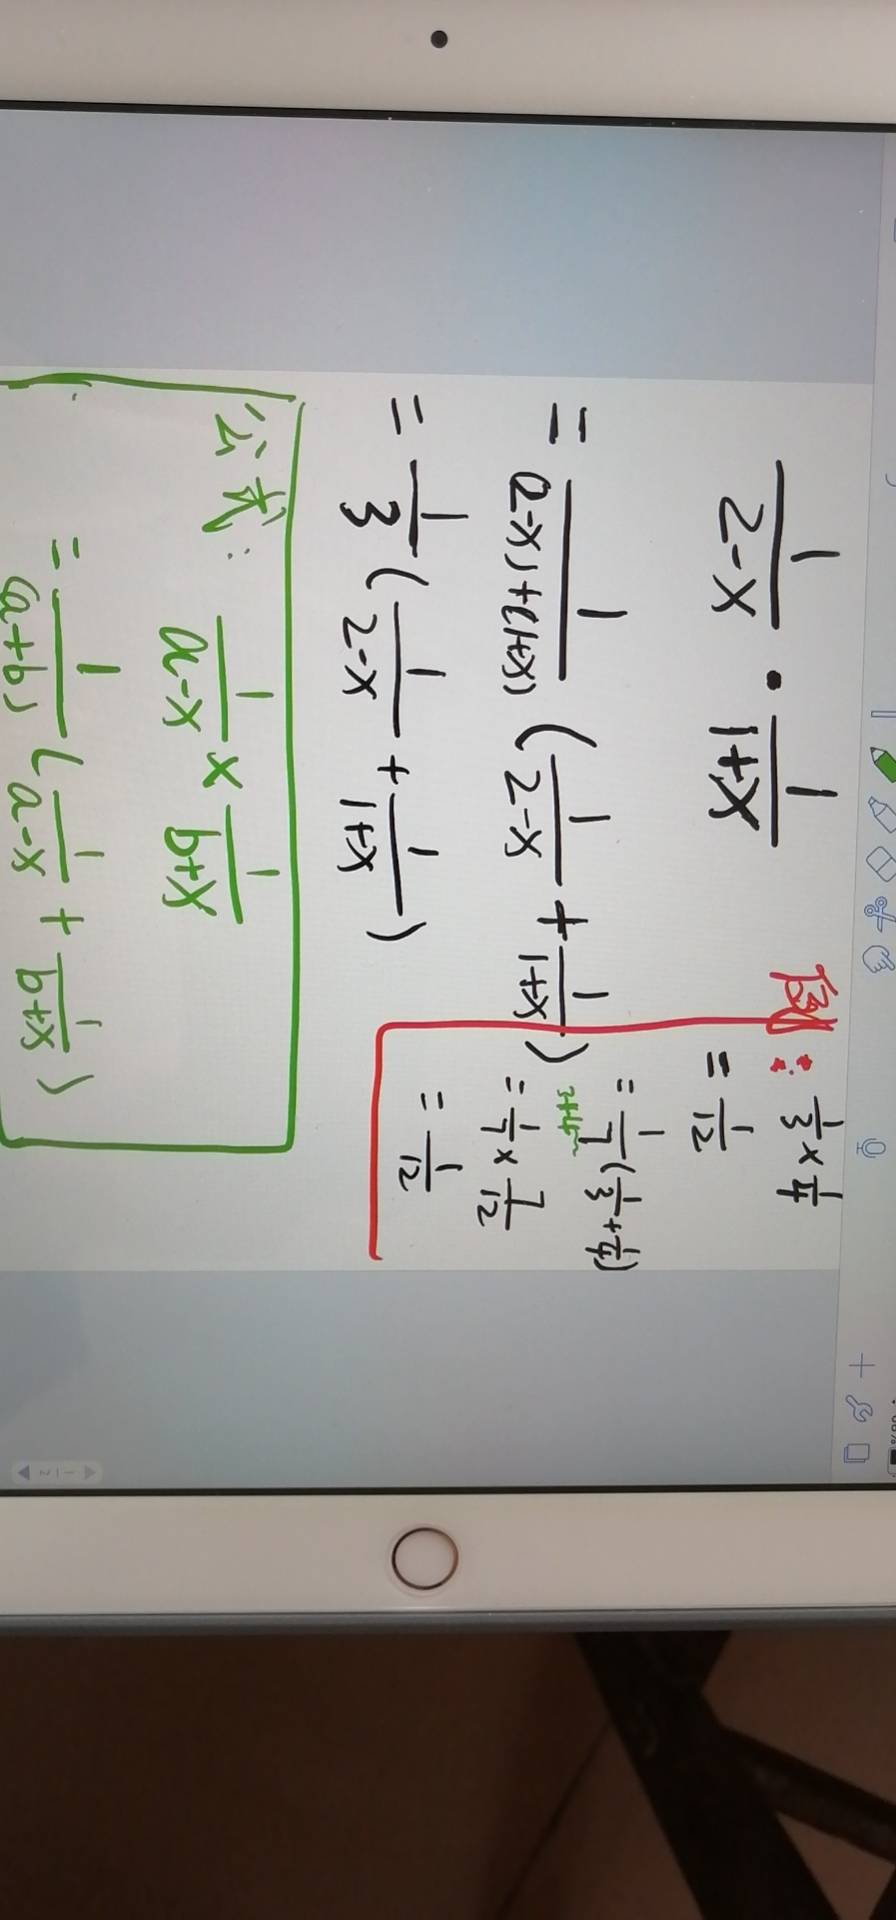 1/(2-x) · 1/(1+x)
= 1/(2-x)+(1+x) (1/(2-x) + 1/(1+x))
= 1/3 (1/(2-x) + 1/(1+x))
例: 1/3 × 1/4
= 1/12
= 1/7 (1/3 + 1/4)
3+4
= 1/7 × 7/12
= 1/12
公式: 1/(a-x) × 1/(b+x)
= 1/(a+b) (1/(a-x) + 1/(b+x))